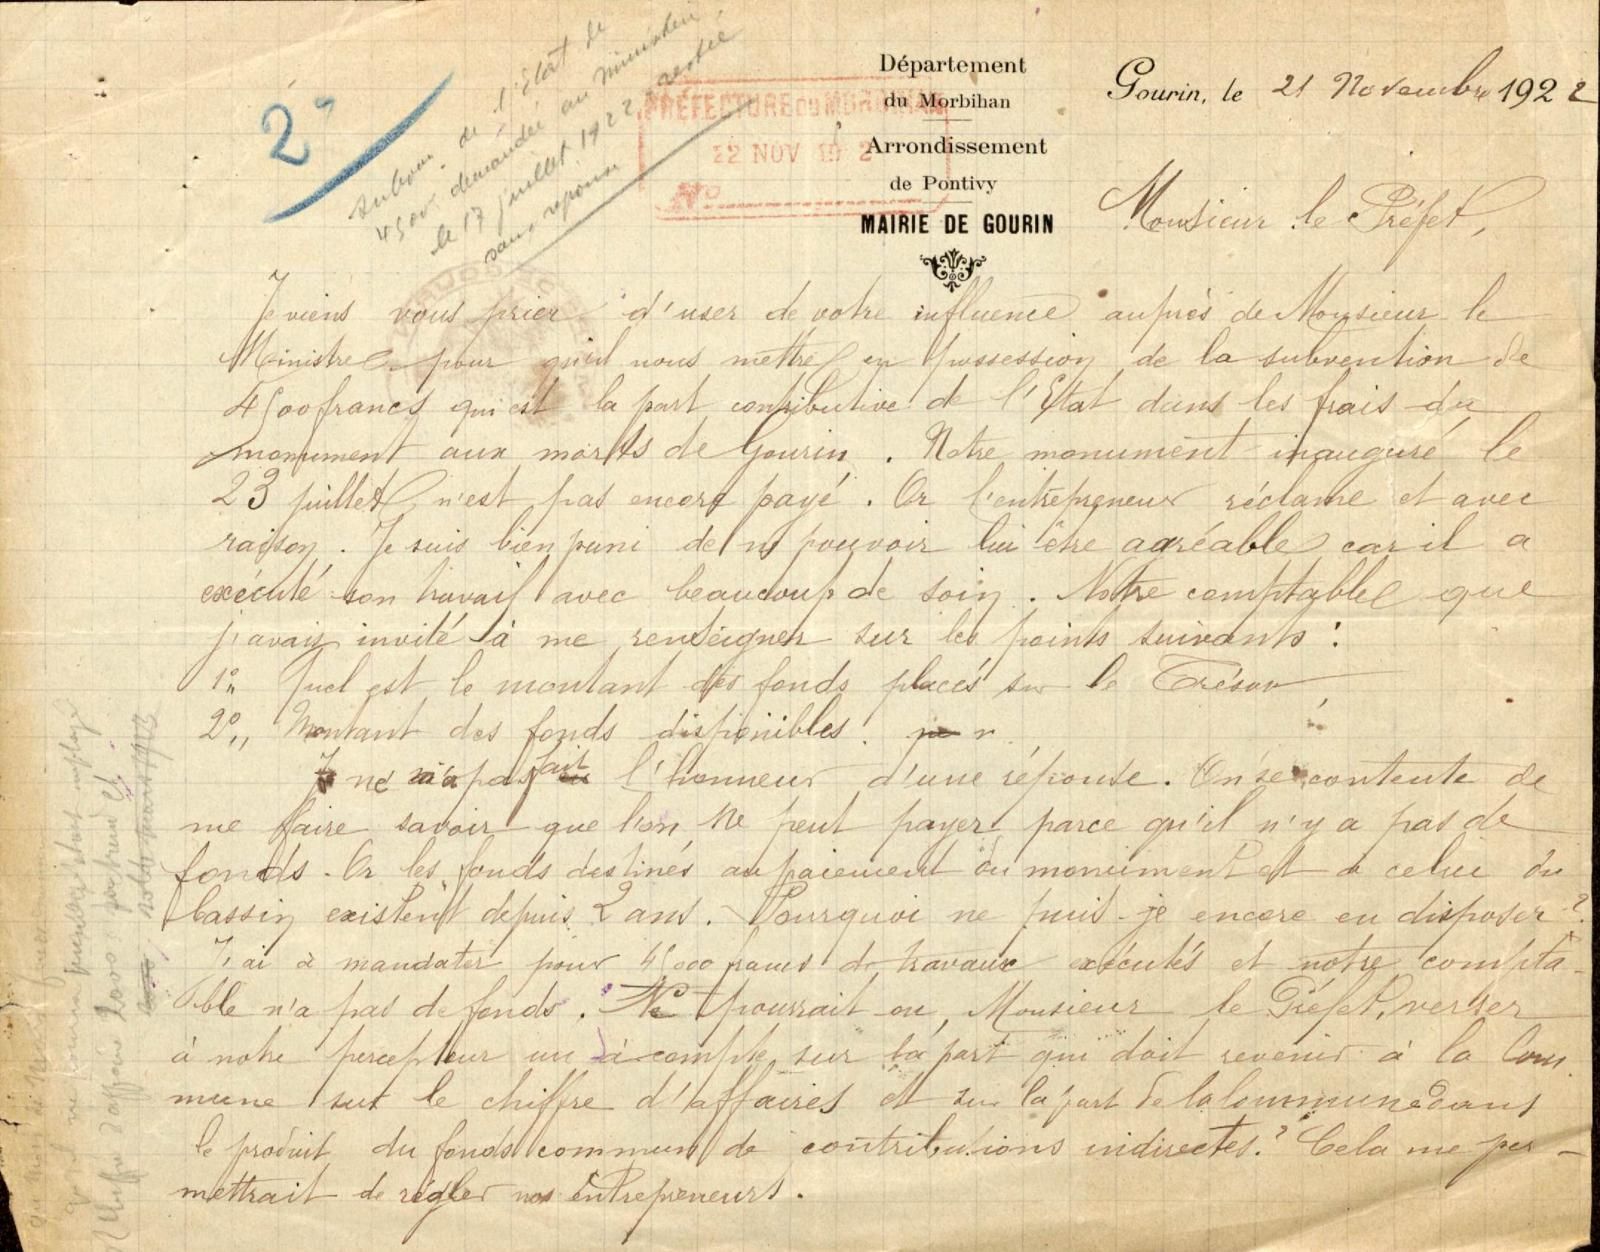 2°
subvon. de l'Etat de
4500 demandée au Ministère
le 17 juillet 1922 restée
sans réponse
PRÉFECTURE DU MORBIHAN
22 NOV 19 2
No
Département
du Morbihan
Arrondissement
de Pontivy
MAIRIE DE GOURIN
Gourin, le 21 Novembre 1922
Monsieur le Préfet,
Je viens vous prier d'user de votre influence auprès de Monsieur le
Ministre pour qu'il nous mettre en possession de la subvention de
4500 francs qui est la part contributive de l'Etat dans les frais du
monument aux morts de Gourin. Notre monument inauguré le
23 juillet n'est pas encore payé. Or l'entrepreneur réclame et avec
raison. Je suis bien puni de ne pouvoir lui être agréable car il a
exécuté son travail avec beaucoup de soin. Notre comptable que
j'avais invité à me renseigner sur les points suivants :
1° Quel est le montant des fonds placés sur le Trésor,
2° Montant des fonds disponibles.
ne m'a pas fait l'honneur d'une réponse. On se contente de
me faire savoir que l'on ne peut payer parce qu'il n'y a pas de
fonds. Or les fonds destinés au paiement du monument et à celui du
bassin existent depuis 2 ans. Pourquoi ne puis-je encore en disposer ?
J'ai à mandater pour 45000 francs de travaux exécutés et notre compta-
ble n'a pas de fonds. Ne pourrait on, Monsieur le Préfet, verser
à notre percepteur un à compte sur la part qui doit revenir à la Com
mune sur le chiffre d'affaires et sur la part de la Commune dans
le produit du fonds commun de contributions indirectes ? Cela me per-
mettrait de régler nos entrepreneurs.